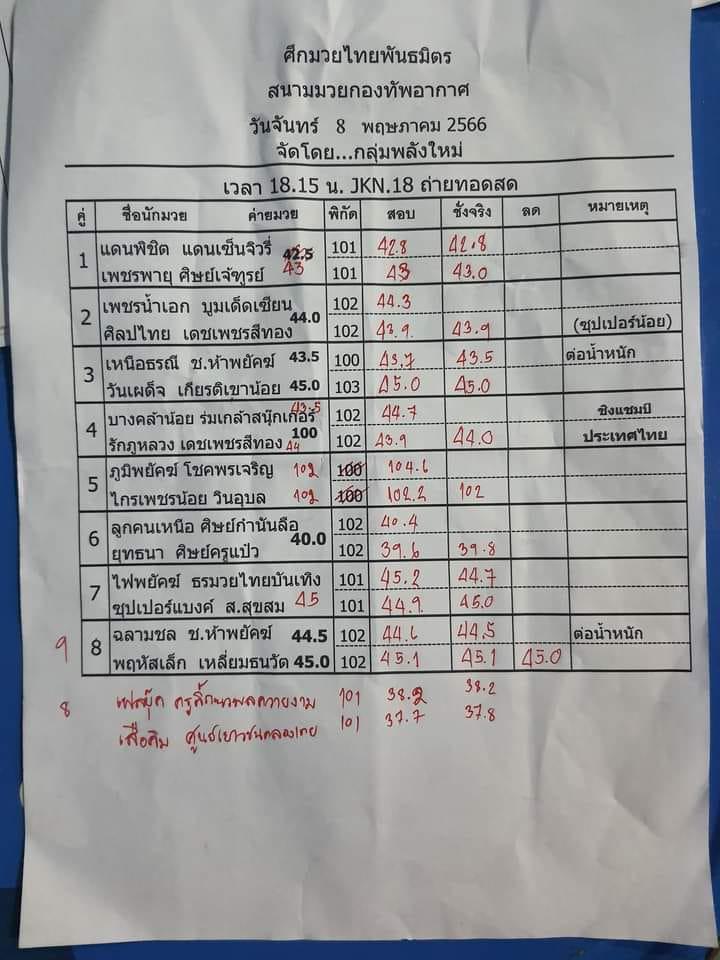 ศึกมวยไทยพันธมิตร
สนามมวยกองทัพอากาศ
วันจันทร์ 8 พฤษภาคม 2566
จัดโดย...กลุ่มพลังใหม่
เวลา 18.15 น. JKN.18 ถ่ายทอดสด
คู่ ชื่อนักมวย ค่ายมวย พิกัด สอบ ชั่งจริง ลด หมายเหตุ
1 แดนพิชิต แดนเซ็นจิวรี่ 42.5 101 42.8 42.8
เพชรพายุ ศิษย์เจ๊ฑูรย์ 43 101 43 43.0
2 เพชรน้ำเอก บูมเด็ดเซียน 44.0 102 44.3
ศิลปไทย เดชเพชรสีทอง 102 43.9 43.9 (ซุปเปอร์น้อย)
3 เหนือธรณี ช.ห้าพยัคฆ์ 43.5 100 43.7 43.5 ต่อน้ำหนัก
วันเผด็จ เกียรติเขาน้อย 45.0 103 45.0 45.0
4 บางคล้าน้อย ร่มเกล้าสนุ๊กเกอร์ 43.5 100 102 44.7 ชิงแชมป์
รักภูหลวง เดชเพชรสีทอง 44 102 43.9 44.0 ประเทศไทย
5 ภูมิพยัคฆ์ โชคพรเจริญ 102 100 104.6
ไกรเพชรน้อย วินอุบล 102 100 102.2 102
6 ลูกคนเหนือ ศิษย์กำนันลือ 40.0 102 40.4
ยุทธนา ศิษย์ครูแป๋ว 102 39.6 39.8
7 ไฟพยัคฆ์ ธรมวยไทยบันเทิง 101 45.2 44.7
ซุปเปอร์แบงค์ ส.สุขสม 45 101 44.9 45.0
9 8 ฉลามชล ช.ห้าพยัคฆ์ 44.5 102 44.6 44.5 ต่อน้ำหนัก
พฤหัสเล็ก เหลี่ยมธนวัด 45.0 102 45.1 45.1 45.0
8 101 38.2 38.2
เสือคิม 101 37.7 37.8